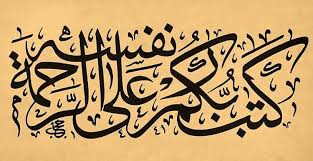 كتب ربكم على نفسه الرحمة